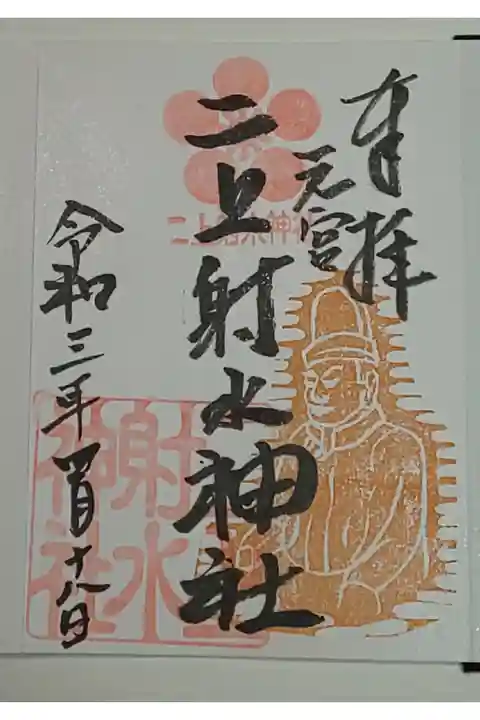 奉拝
元宮
二上射水神社
令和三年四月十八日
二上射水神社
射水神社